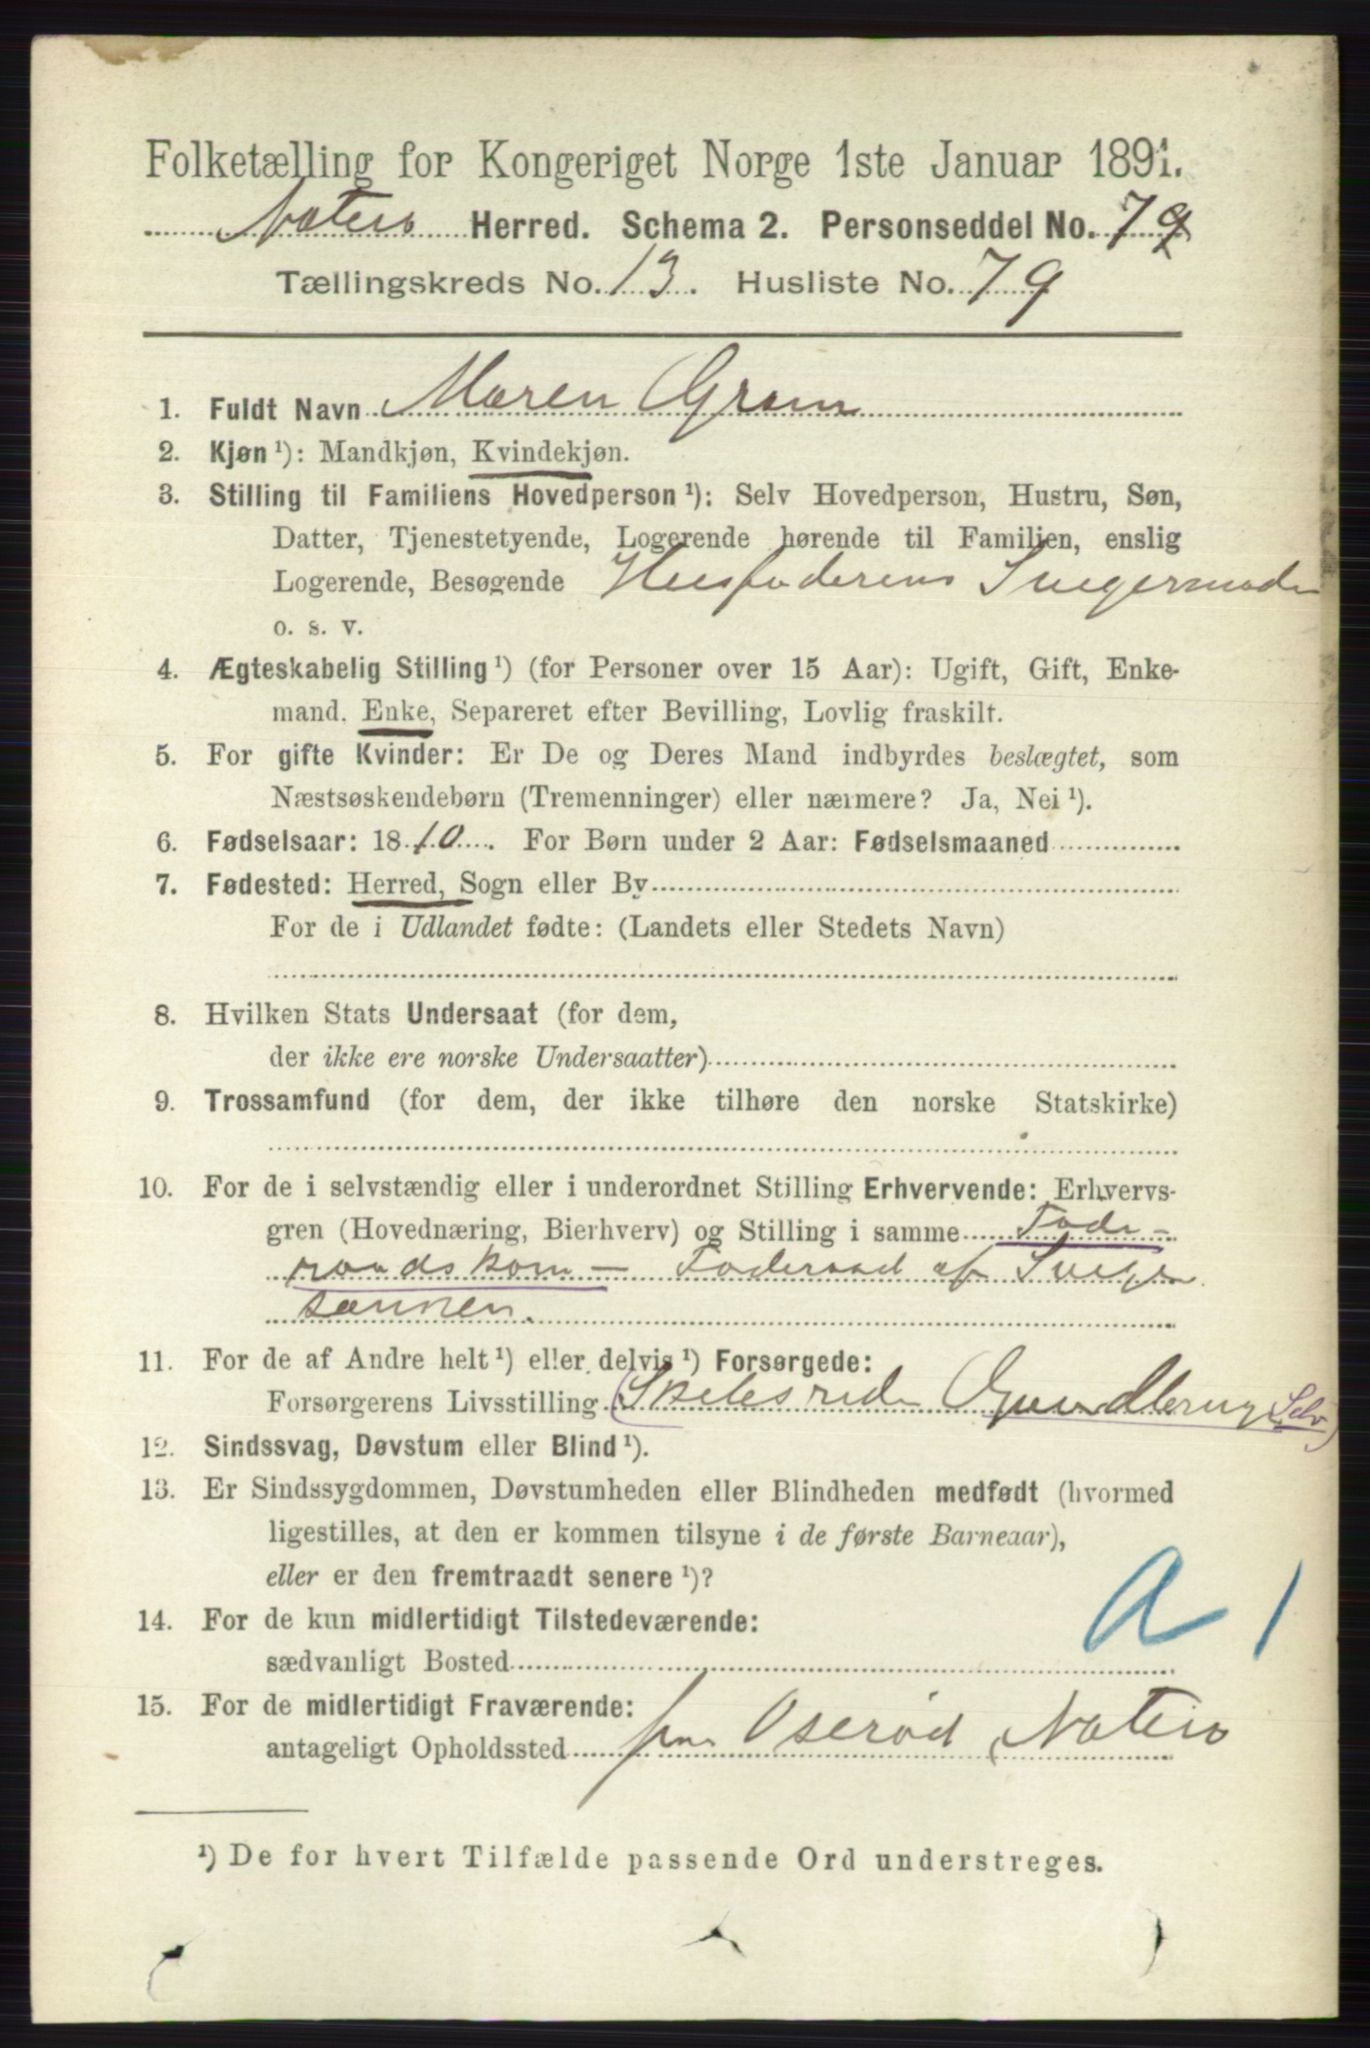 Folketælling for Kongeriget Norge 1ste Januar 1891.
Nøterø Herred. Schema 2. Personseddel No. 79
Tællingskreds No. 13. Husliste No. 79
1. Fuldt Navn Maren Gram
2. Kjøn ¹): Mandkjøn, Kvindekjøn.
3. Stilling til Familiens Hovedperson ¹): Selv Hovedperson, Hustru, Søn,
Datter, Tjenestetyende, Logerende hørende til Familien, enslig
Logerende, Besøgende Husfaderens Svigermoder
o. s. v.
4. Ægteskabelig Stilling ¹) (for Personer over 15 Aar): Ugift, Gift, Enke-
mand, Enke, Separeret efter Bevilling, Lovlig fraskilt.
5. For gifte Kvinder: Er De og Deres Mand indbyrdes beslægtet, som
Næstsøskendebørn (Tremenninger) eller nærmere? Ja, Nei ¹).
6. Fødselsaar: 1810. For Børn under 2 Aar: Fødselsmaaned
7. Fødested: Herred, Sogn eller By
For de i Udlandet fødte: (Landets eller Stedets Navn)
8. Hvilken Stats Undersaat (for dem,
der ikke ere norske Undersaatter)
9. Trossamfund (for dem, der ikke tilhøre den norske Statskirke)
10. For de i selvstændig eller i underordnet Stilling Erhvervende: Erhvervs-
gren (Hovednæring, Bierhverv) og Stilling i samme Føde-
raadskone - Føderaad af Sviger
sønnen.
11. For de af Andre helt ¹) eller delvis ¹) Forsørgede:
Forsørgerens Livsstilling (Skibsreder Selv)
12. Sindssvag, Døvstum eller Blind ¹).
13. Er Sindssygdommen, Døvstumheden eller Blindheden medfødt (hvormed
ligestilles, at den er kommen tilsyne i de første Barneaar),
eller er den fremtraadt senere ¹)?
14. For de kun midlertidigt Tilstedeværende:
sædvanligt Bosted
a 1
15. For de midlertidigt Fraværende:
antageligt Opholdssted Oserød, Nøterø
¹) De for hvert Tilfælde passende Ord understreges.